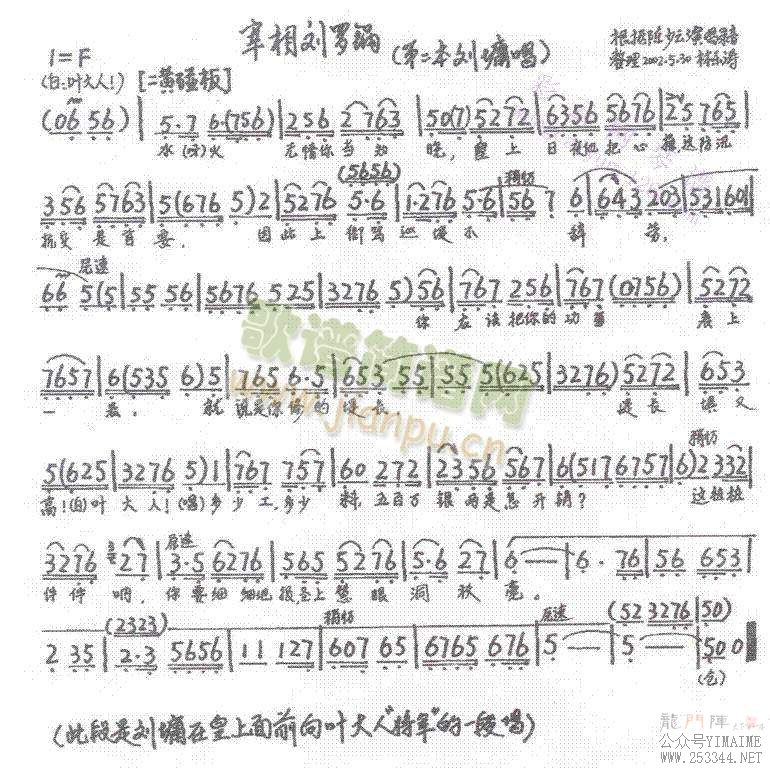 宰相刘罗锅(第二本刘墉唱)
根据陈少云演唱录音
整理2002.5.30
1=F
(白:叶大人!) [二黄碰板]
(06 56) | 5·7 6·(756) | 256 2763 | 50(7) 5272 | 6356 5676 | 25 765 |
水(呀)火 无情你当知晓, 皇上日夜他把心操,这防汛
(5656) 稍切
356 5763 | 5(676 5)2 | 5276 5·6 | 1·276 5·6 | 56 7 6 | 643 203 | 53160 |
抗灾是首要, 因此上街骂巡堤不辞劳,
原速
66 5(5 | 55 56 | 5676 525 | 3276 5)56 | 767 256 | 767 (0756) | 5272
你应该把你的功 表上
7657 | 6(535 6)5 | 765 6·5 | 653 55 | 55 5(625 | 3276) 5272 | 653
一表, 就说是你修的堤长, 堤长 又
稍切
5(625 | 3276 5)1 | 767 757 | 60 272 | 2356 567 | 6(517 6757 | 6)2 332
高!(白)叶大人!(唱)多少工,多少料,五百万银两是怎开销? 这桩桩
原速
3276 27 | 3·5 6276 | 565 5276 | 5·6 27 | 6 — | 6·76 | 56 653
件件呐, 你要细细地报,圣上慧眼洞秋毫。
(2323) 稍切 原速 (52 3276 | 50)
2 35 | 2·3 5656 | 11 127 | 607 65 | 6765 676 | 5 — | 5 — | 500
(仓)
(此段是刘墉在皇上面前向叶大人"将军"的一段唱)
歌谱简谱网
www.jianpu.cn
龍門陣
公众号YIMAIME
www.253344.net